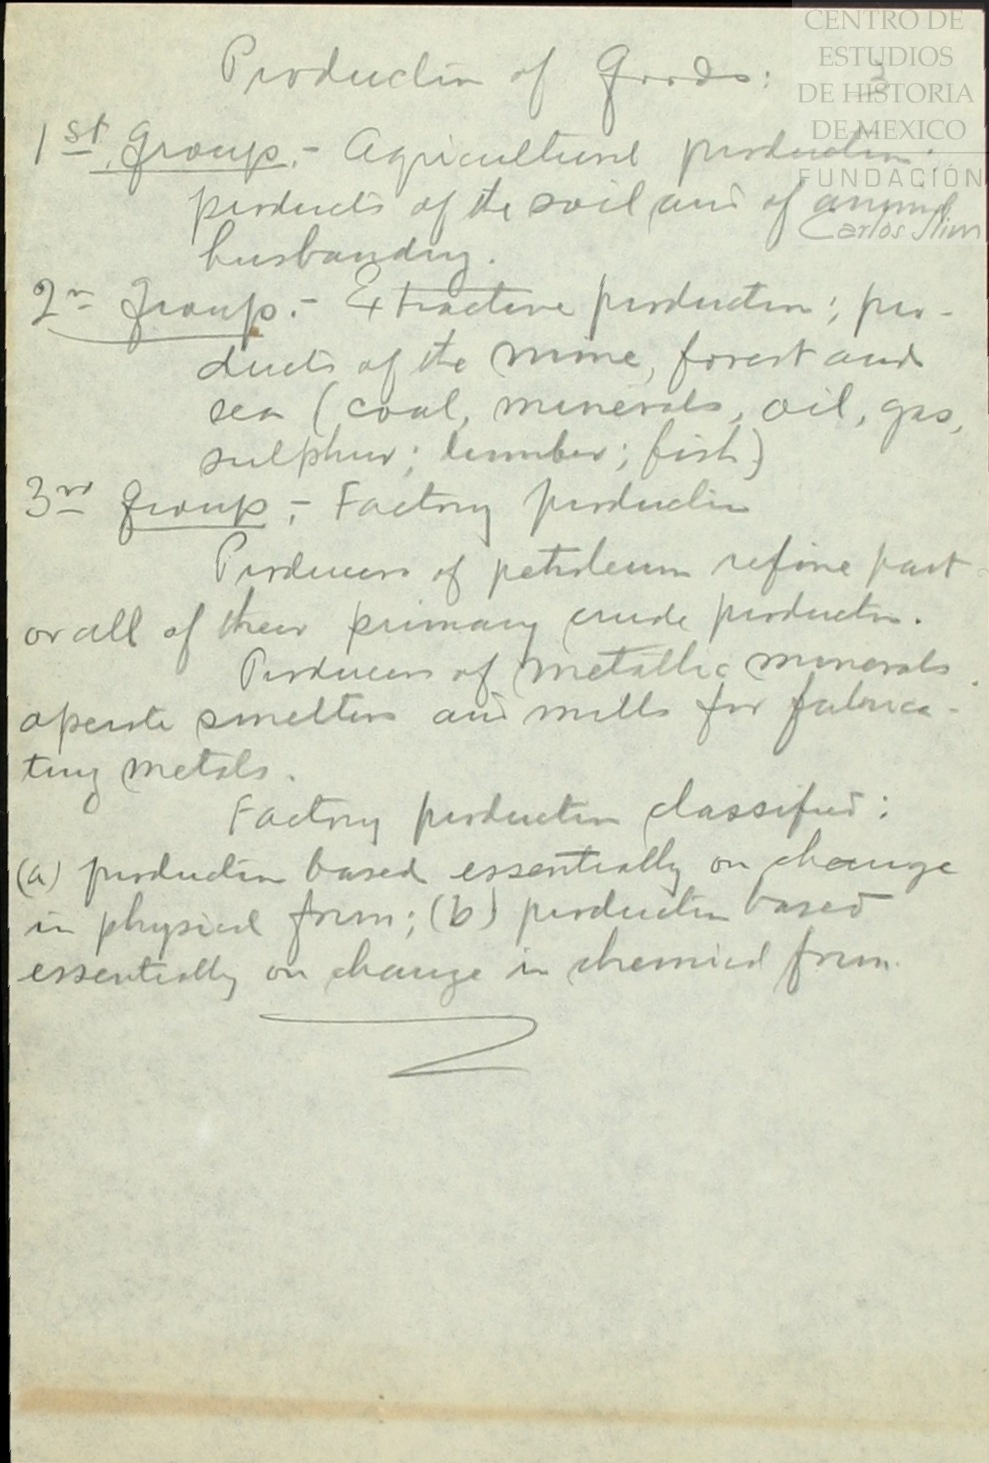 CENTRO DE
ESTUDIOS
DE HISTORIA
DE MEXICO
FUNDACIÓN
Carlos Slim
3
Production of Goods:
1st Group.- Agricultural production:
products of the soil and of animal
husbandry.
2nd Group.- Extractive production; pro-
ducts of the mine, forest and
sea (coal, minerals, oil, gas,
sulphur; lumber; fish)
3rd Group.- Factory production
Producers of petroleum refine part
or all of their primary crude production.
Producers of metallic minerals
operate smelters and mills for fabrica-
ting metals.
Factory production classified:
(a) production based essentially on change
in physical form; (b) production based
essentially on change in chemical form.